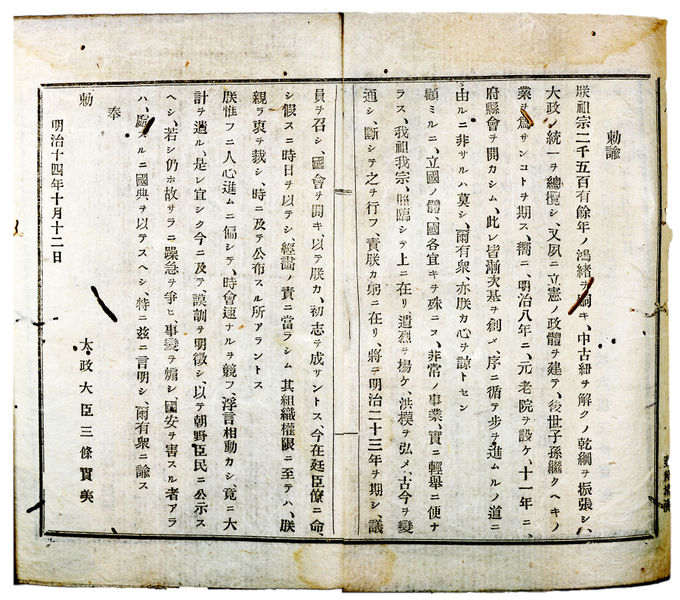 勅諭
朕祖宗二千五百有餘年ノ鴻緒ヲ嗣キ、中古紐ヲ解クノ乾綱ヲ振張シ、
大政ノ統一ヲ總攬シ、又夙ニ立憲ノ政體ヲ建テ、後世子孫繼クヘキノ
業ヲ爲サンコトヲ期ス、嚮ニ、明治八年ニ、元老院ヲ設ケ、十一年ニ、
府縣會ヲ開カシム、此レ皆漸次基ヲ創メ、序ニ循テ步ヲ進ムルノ道ニ
由ルニ非サルハ莫シ、爾有衆、亦朕カ心ヲ諒トセン
顧ミルニ、立國ノ體、國各宜キヲ殊ニス、非常ノ事業、實ニ輕擧ニ便ナ
ラス、我祖我宗、照臨シテ上ニ在リ、遺烈ヲ揚ケ、洪模ヲ弘メ、古今ヲ變
通シ、斷シテ之ヲ行フ、責朕カ躬ニ在リ、將ニ明治二十三年ヲ期シ、議
員ヲ召シ、國會ヲ開キ、以テ朕カ初志ヲ成サントス、今在廷臣僚ニ命
シ、假スニ時日ヲ以テシ、經畫ノ責ニ當ラシム、其組織權限ニ至テハ、朕
親ラ衷ヲ裁シ、時ニ及テ公布スル所アラントス
朕惟フニ、人心進ムニ偏シテ、時會速ナルヲ競フ、浮言相動カシ、竟ニ大
計ヲ遺ル、是レ宜シク今ニ及テ、謨訓ヲ明徵シ、以テ朝野臣民ニ公示ス
ヘシ、若シ仍ホ故サラニ躁急ヲ爭ヒ、事變ヲ煽シ、國安ヲ害スル者アラ
ハ、處スルニ國典ヲ以テスヘシ、特ニ茲ニ言明シ、爾有衆ニ諭ス
奉
勅 太政大臣三條實美
明治十四年十月十二日